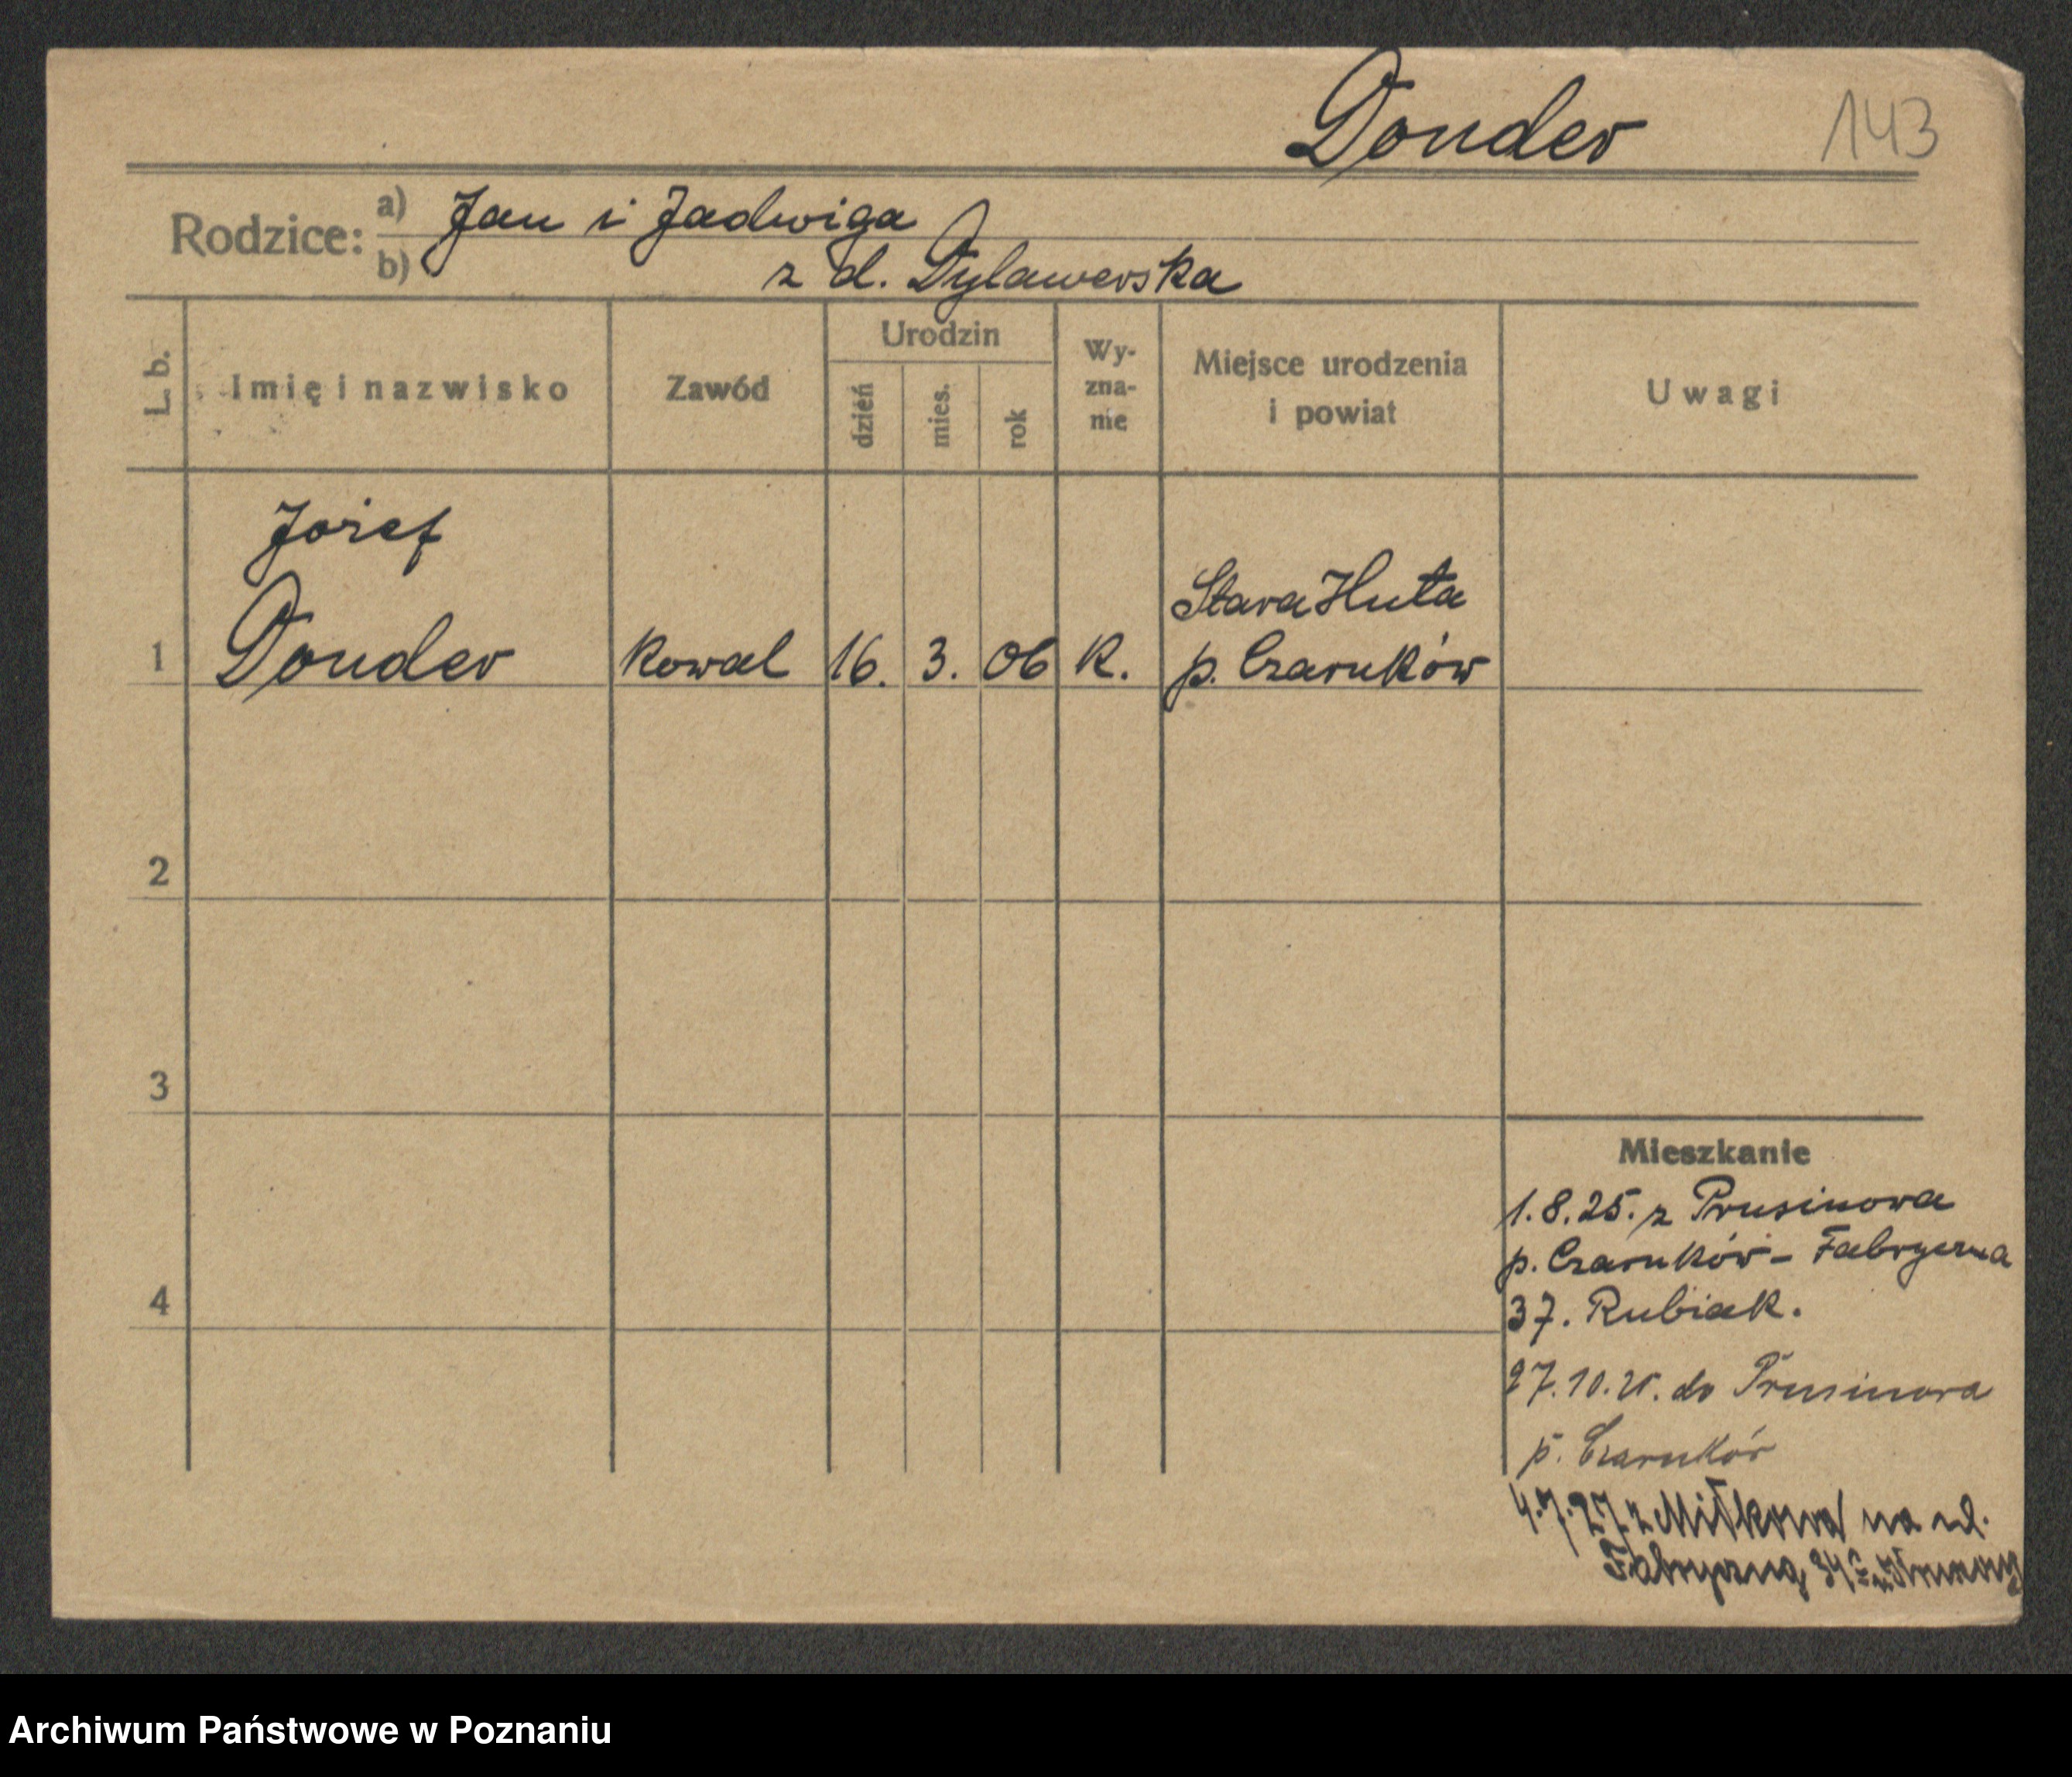 Donder 143
Rodzice: a) Jan i Jadwiga
b) z d. Dylawerska
L. b. Imię i nazwisko Zawód Urodzin dzień mies. rok Wy-zna-nie Miejsce urodzenia i powiat Uwagi
Józef
Stara Huta
1 Donder Kowal 16. 3. 06 K. p. Czarnków
2
3
Mieszkanie
1.8.25. z Prusinowa
p. Czarnków - Fabryczna
4
37. Rubiak.
27.10.25. do Prusinowa
p. Czarnków
4.7.27 z Miłkowa na ul.
Fabryczną 34
Archiwum Państwowe w Poznaniu